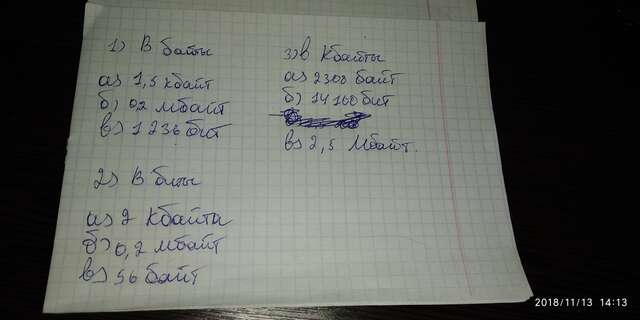 1) В байты
а) 1,5 кбайт
б) 0,2 мбайт
в) 1 236 бит
2) В биты
а) 2 Кбайта
б) 0,2 мбайт
в) 56 байт
3) в Кбайты
а) 2300 байт
б) 14160 бит
в) 2,5 Мбайт.
2018/11/13 14:13